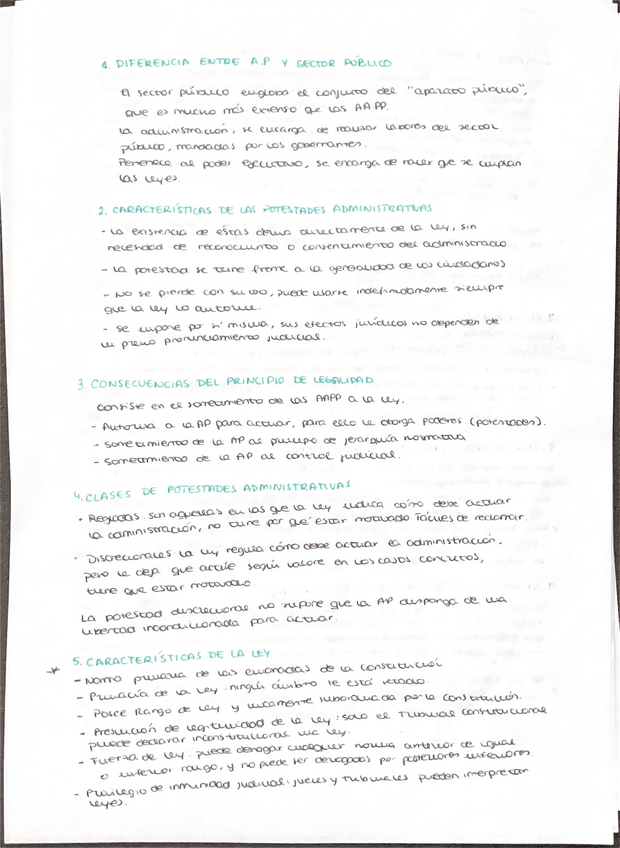 1. DIFERENCIA ENTRE A.P Y SECTOR PÚBLICO
El sector público engloba el conjunto del "aparato público",
que es mucho más extenso que las AAPP.
La administración, se encarga de realizar labores del sector
público, mandadas por los gobernantes.
Pertenece al poder Ejecutivo, se encarga de hacer que se cumplan
las leyes.
2. CARACTERÍSTICAS DE LAS POTESTADES ADMINISTRATIVAS
- La existencia de éstas deriva directamente de la ley, sin
necesidad de reconocimiento o consentimiento del administrado.
- La potestad se tiene frente a la generalidad de los ciudadanos
- No se pierde con su uso, puede usarse indefinidamente siempre
que la ley lo autorice.
- Se impone por sí misma, sus efectos jurídicos no dependen de
un previo pronunciamiento judicial.
3. CONSECUENCIAS DEL PRINCIPIO DE LEGALIDAD
Consiste en el sometimiento de las AAPP a la ley.
- Autoriza a la AP para actuar, para ello le otorga poderes (potestades).
- Sometimiento de la AP al principio de jerarquía normativa
- Sometimiento de la AP al control judicial.
4. CLASES DE POTESTADES ADMINISTRATIVAS
· Regladas: son aquellas en las que la ley indica cómo debe actuar
la administración, no tiene por qué estar motivado. Fáciles de reclamar.
· Discrecionales: La ley regula cómo debe actuar la administración,
pero le deja que actúe según valore en los casos concretos,
tiene que estar motivado.
La potestad discrecional no supone que la AP disponga de una
libertad incondicionada para actuar.
* 5. CARACTERÍSTICAS DE LA LEY
- Norma primaria de las emanadas de la constitución
- Primacía de la ley: ningún ámbito le está vedado.
- Posee Rango de ley y únicamente subordinada por la constitución.
- Presunción de legitimidad de la ley: solo el Tribunal constitucional
puede declarar inconstitucional una ley.
- Fuerza de ley: puede derogar cualquier norma anterior de igual
o inferior rango, y no puede ser derogadas por posteriores inferiores.
- Privilegio de inmunidad judicial: jueces y tribunales pueden interpretar
leyes.